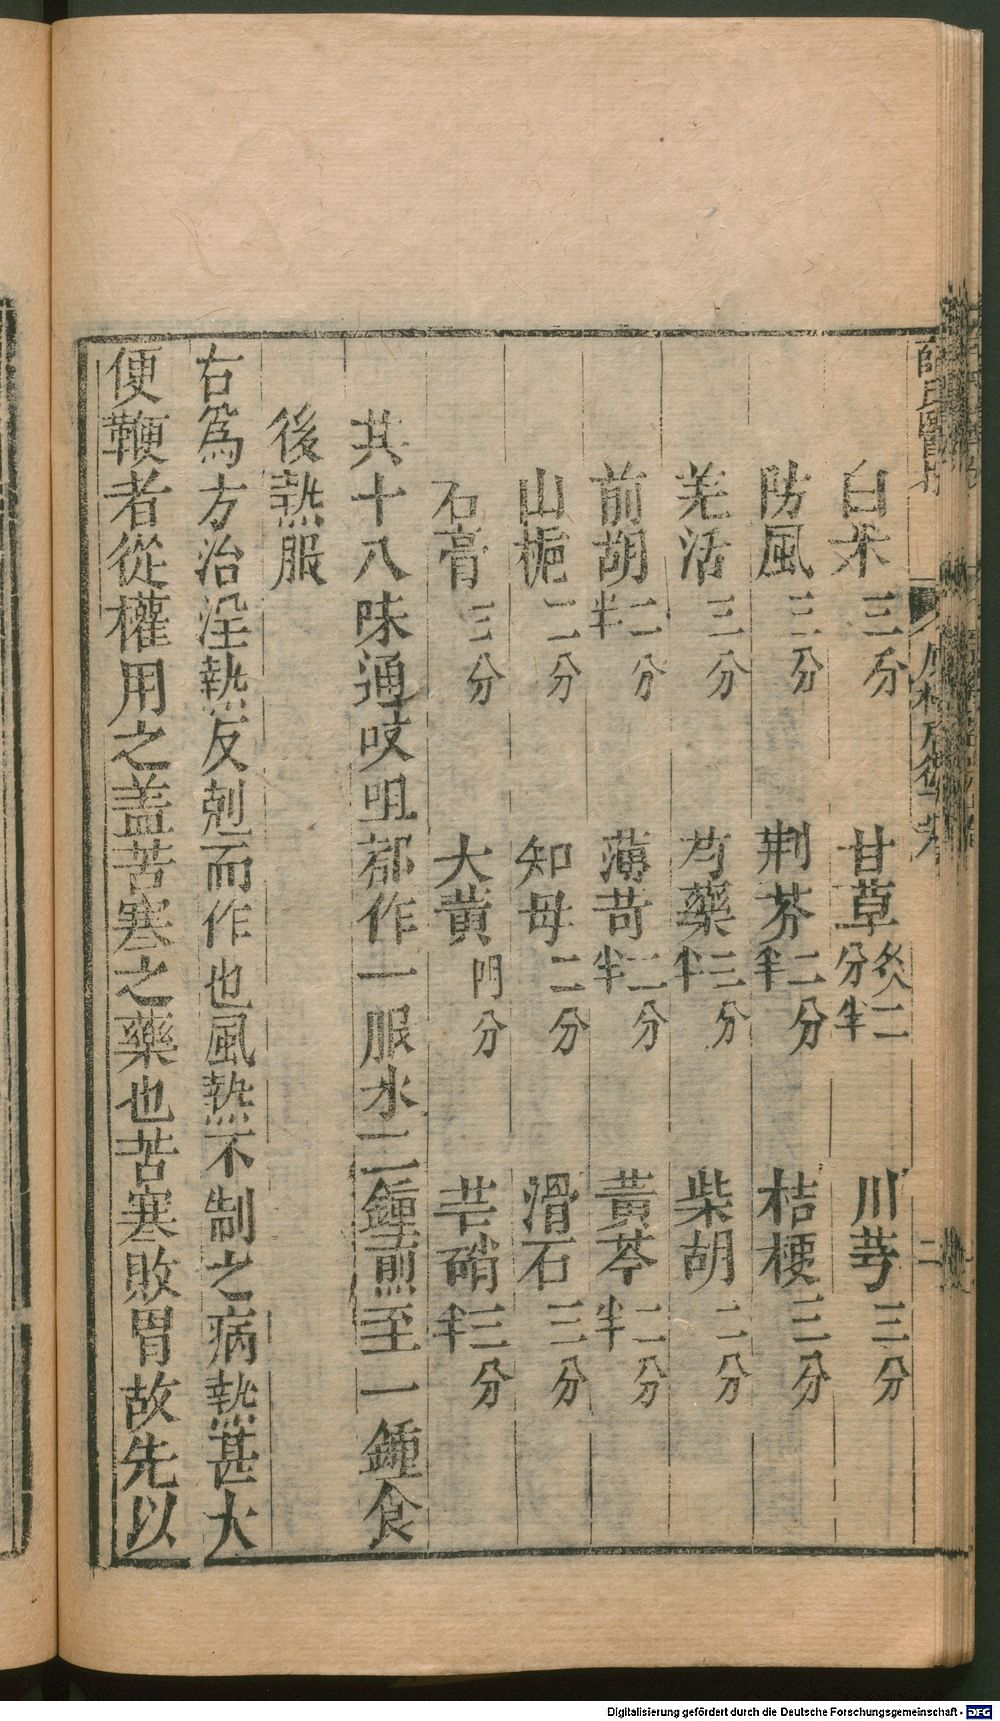 白朮三分 甘草炙二分半 川芎三分
防風三分 荆芥二分半 桔梗三分
羌活三分 芍藥二分半 柴胡二分
前胡二分半 薄苛二分半 黃芩二分半
山梔二分 知母二分 滑石三分
石膏三分 大黃分 芒硝三分半
共十八味通㕮咀都作一服水二鍾煎至一鍾食
後熱服
右爲方治淫熱反剋而作也風熱不制之病熱甚大
便鞕者從權用之盖苦寒之藥也苦寒敗胃故先以
Digitalisierung gefördert durch die Deutsche Forschungsgemeinschaft - DFG